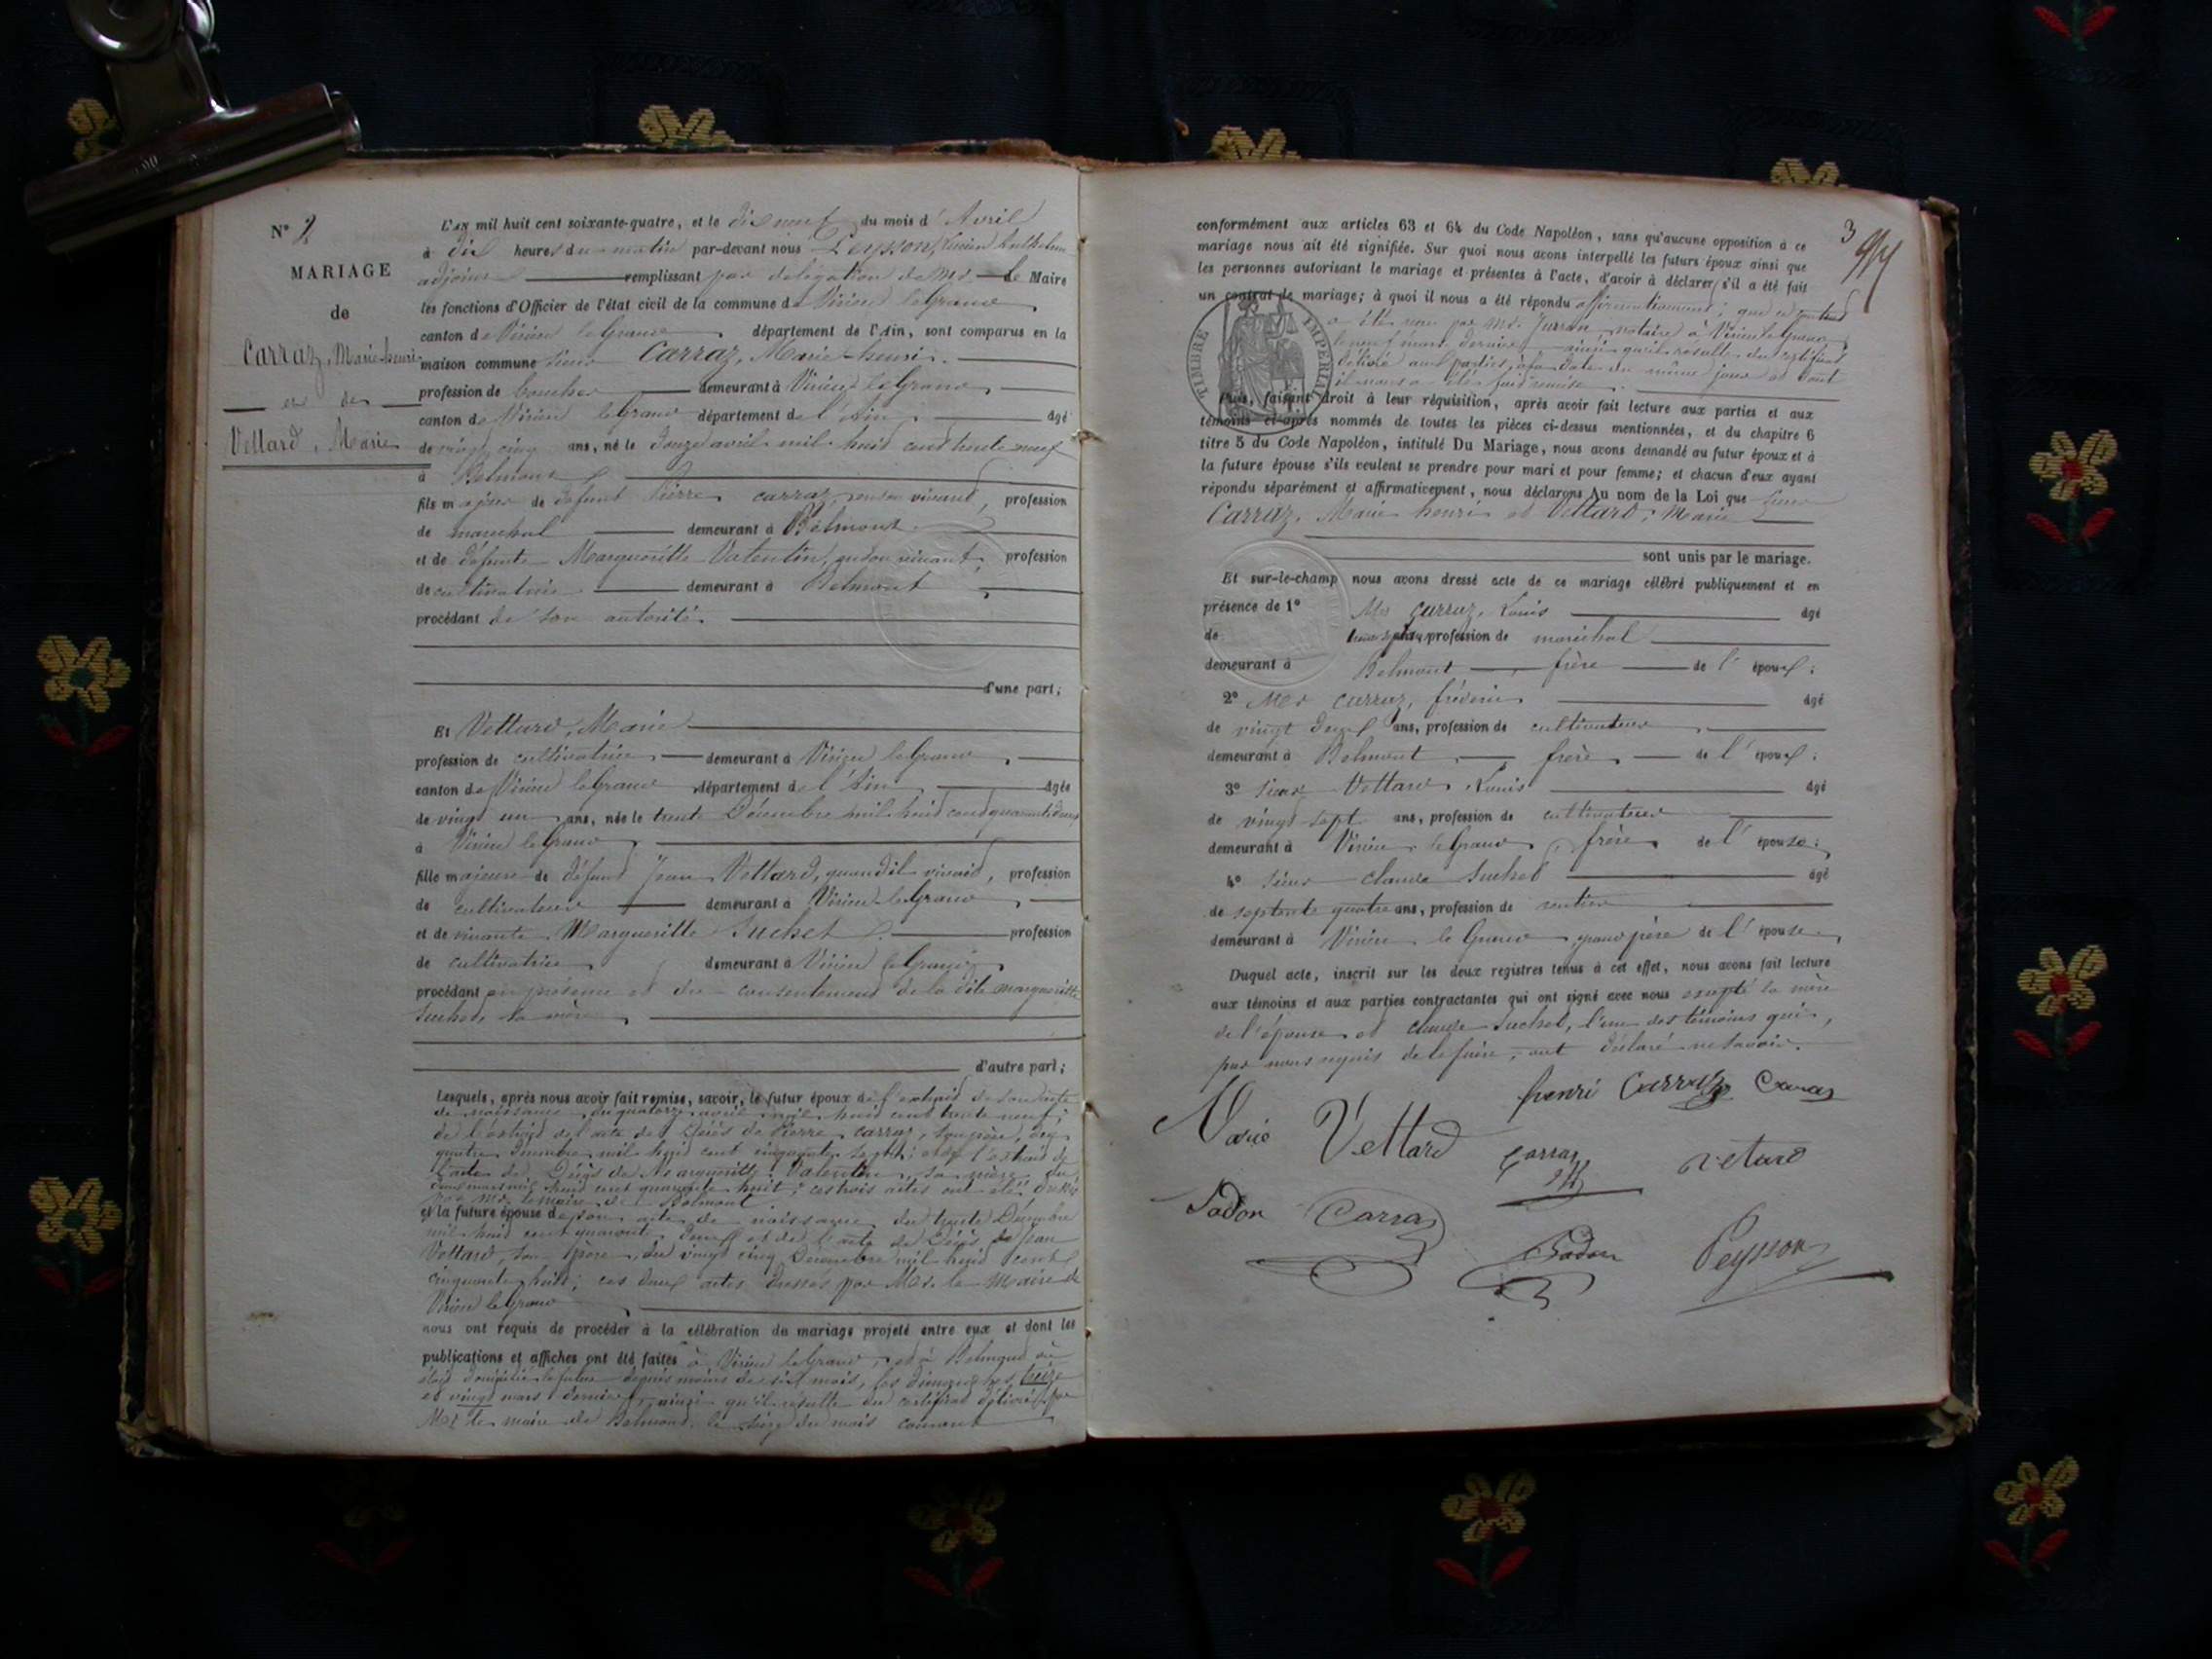 N° 2
MARIAGE
de
Carraz, Marie henri
et de
Vettard, Marie
L'AN mil huit cent soixante-quatre, et le dix neuf du mois d'Avril
à dix heures du matin par-devant nous Peysson, Lucien Anthelme
adjoint remplissant par délégation de Mr le Maire
les fonctions d'Officier de l'état civil de la commune de Virieu le Grand
canton de Virieu le Grand département de l'Ain, sont comparus en la
maison commune sieur Carraz, Marie henri
profession de boucher demeurant à Virieu le Grand
canton de Virieu le Grand département de l'Ain âgé
de vingt cinq ans, né le douze avril mil huit cent trente neuf
à Belmont
fils majeur de défunt Pierre Carraz, en son vivant, profession
de marechal demeurant à Belmont
et de défunte Margueritte Valentin, en son vivant, profession
de cultivatrice demeurant à Belmont
procédant de son autorité.
d'une part;
Et Vettard, Marie
profession de cultivatrice demeurant à Virieu le Grand
canton de Virieu le Grand département de l'Ain âgée
de vingt un ans, née le trente Décembre mil huit cent quarante deux
à Virieu le Grand
fille majeure de défunt Jean Vettard, quand il vivait, profession
de cultivateur demeurant à Virieu le Grand
et de vivante Margueritte Suchet profession
de cultivatrice demeurant à Virieu le Grand
procédant en présence et du consentement de la dite marguerittte
Suchet, sa mère
d'autre part;
Lesquels, après nous avoir fait remise, savoir, le futur époux de l'extrait de son acte
de naissance du quatorze avril mil huit cent trente neuf;
de l'extrait de l'acte de Décès de Pierre Carraz, son père, du
quatre Décembre mil huit cent cinquante sept; et de l'extrait de
l'acte de Décès de Margueritte Valentin, sa mère, du
mars mil huit cent quarante huit; ces trois actes ont été dressés
par Mr le maire de Belmont
et la future épouse de son acte de naissance du trente Décembre
mil huit cent quarante deux et de l'acte de Décès de Jean
Vettard, son père, du vingt cinq Décembre mil huit cent
cinquante huit; ces deux actes dressés par Mr le Maire de
Virieu le Grand
nous ont requis de procéder à la célébration du mariage projeté entre eux et dont les
publications et affiches ont été faites à Virieu le Grand, et à Belmont où
était domicilié le futur depuis moins de six mois, les dimanches treize
et vingt mars dernier, ainsi qu'il résulte du certificat délivré par
Mr le maire de Belmont le du mois courant
3
conformément aux articles 63 et 64 du Code Napoléon, sans qu'aucune opposition à ce
mariage nous ait été signifiée. Sur quoi nous avons interpellé les futurs époux ainsi que
les personnes autorisant le mariage et présentes à l'acte, d'avoir à déclarer s'il a été fait
un contrat de mariage; à quoi il nous a été répondu affirmativement; que ce contrat
a été reçu par Mr notaire à Virieu le Grand
le neuf mars dernier ainsi qu'il résulte du certificat
délivré aux parties, à la date du même jour et dont
il nous a été fait remise.
TIMBRE IMPERIAL
Puis, faisant droit à leur réquisition, après avoir fait lecture aux parties et aux
témoins ci-après nommés de toutes les pièces ci-dessus mentionnées, et du chapitre 6
titre 5 du Code Napoléon, intitulé Du Mariage, nous avons demandé au futur époux et à
la future épouse s'ils veulent se prendre pour mari et pour femme; et chacun d'eux ayant
répondu séparément et affirmativement, nous déclarons Au nom de la Loi que sieur
Carraz, Marie henri et Vettard, Marie
sont unis par le mariage.
Et sur-le-champ nous avons dressé acte de ce mariage célébré publiquement et en
présence de 1° Mr Carraz, Louis âgé
de profession de maréchal
demeurant à Belmont, frère de l'époux;
2° Mr Carraz, fréderic âgé
de vingt deux ans, profession de cultivateur
demeurant à Belmont, frère, de l'époux;
3° Sieur Vettard, Louis âgé
de vingt sept ans, profession de cultivateur
demeurant à Virieu le Grand, frère, de l'épouse;
4° Sieur Claude Suchet âgé
de septante quatre ans, profession de rentier
demeurant à Virieu le Grand, grand père de l'épouse
Duquel acte, inscrit sur les deux registres tenus à cet effet, nous avons fait lecture
aux témoins et aux parties contractantes qui ont signé avec nous excepté la mère
de l'épouse et claude Suchet, l'un des témoins qui,
par nous requis de le faire, ont déclaré ne savoir.
henri Carraz Carraz
Marie Vettard Carraz vetard
Sadon Carraz Sadon Peysson